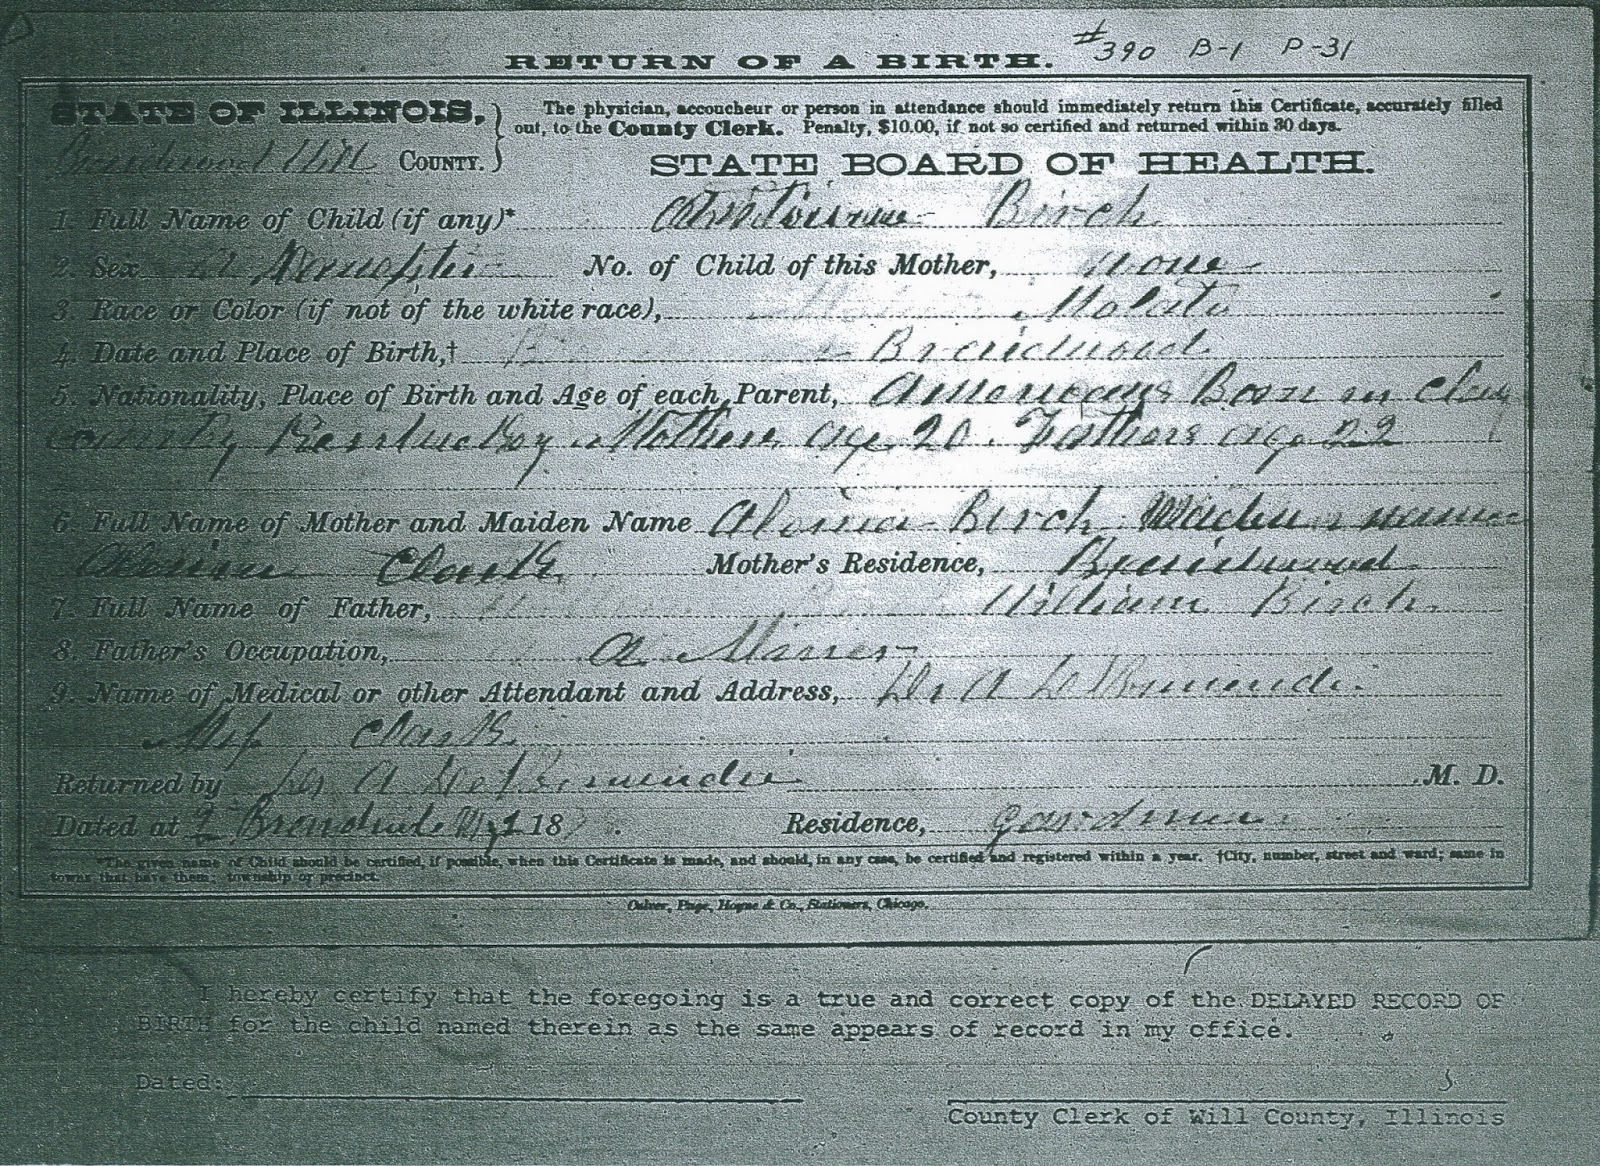 RETURN OF A BIRTH. #390 B-1 P-31
STATE OF ILLINOIS,
The physician, accoucheur or person in attendance should immediately return this Certificate, accurately filled
out, to the County Clerk. Penalty, $10.00, if not so certified and returned within 30 days.
Will COUNTY.
STATE BOARD OF HEALTH.
1. Full Name of Child (if any)* Birch
2. Sex A No. of Child of this Mother, none
3. Race or Color (if not of the white race), Molato
4. Date and Place of Birth,† Breidwood
5. Nationality, Place of Birth and Age of each Parent, Americans Born in Clay
county Mothers age 20. Fathers age 22
6. Full Name of Mother and Maiden Name Birch Maiden name
Clark Mother's Residence, Breidwood
7. Full Name of Father, William Birch
8. Father's Occupation, A Miner
9. Name of Medical or other Attendant and Address, Dr A
Clark
Returned by Dr A M. D.
Dated at 18 . Residence, Gardner
*The given name of Child should be certified, if possible, when this Certificate is made, and should, in any case, be certified and registered within a year. †City, number, street and ward; same in
towns that have them; township or precinct.
Culver, Page, Hoyne & Co., Stationers, Chicago.
I hereby certify that the foregoing is a true and correct copy of the DELAYED RECORD OF
BIRTH for the child named therein as the same appears of record in my office.
Dated:
County Clerk of Will County, Illinois